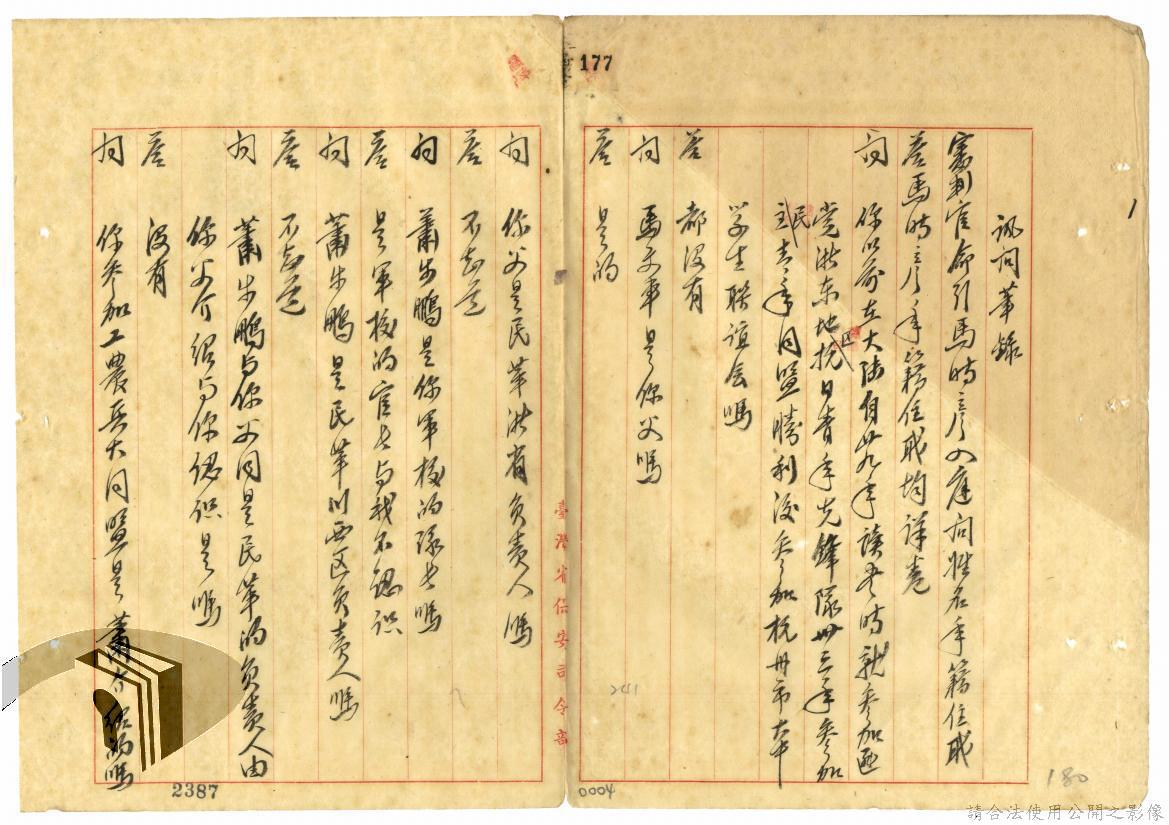 177
1
訊問筆錄
審判官命引馬時彥入庭問姓名年籍住職
答 馬時彥年籍住職均詳卷
問 你以前在大陸自卅九年讀書時就參加匪
党浙东地区抗日青年先鋒隊卅三年参加
民主青年同盟勝利後参加杭州市大中
学生联谊会嗎
答 都没有
問 馬文車是你父嗎
答 是的
問 你父是民革浙省负责人嗎
答 不知道
問 蕭步鵬是你軍校的隊长嗎
答 是軍校的官长与我不認识
問 蕭步鵬是民革川西区负责人嗎
答 不知道
問 蕭步鵬与你父同是民革的负责人由
你父介绍与你認识是嗎
答 没有
問 你参加工農兵大同盟是蕭介绍的嗎
臺灣省保安司令部
241
2387
0004
180
請合法使用公開之影像